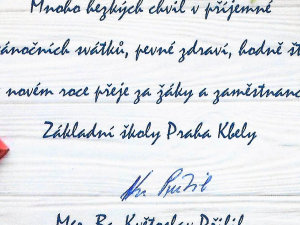 Mnoho hezkých chvil v příjemné
vánočních svátků, pevné zdraví, hodně
novém roce přeje za žáky a zaměstnanc
Základní školy Praha Kbely
Mgr. Bc. Květoslav Přibil